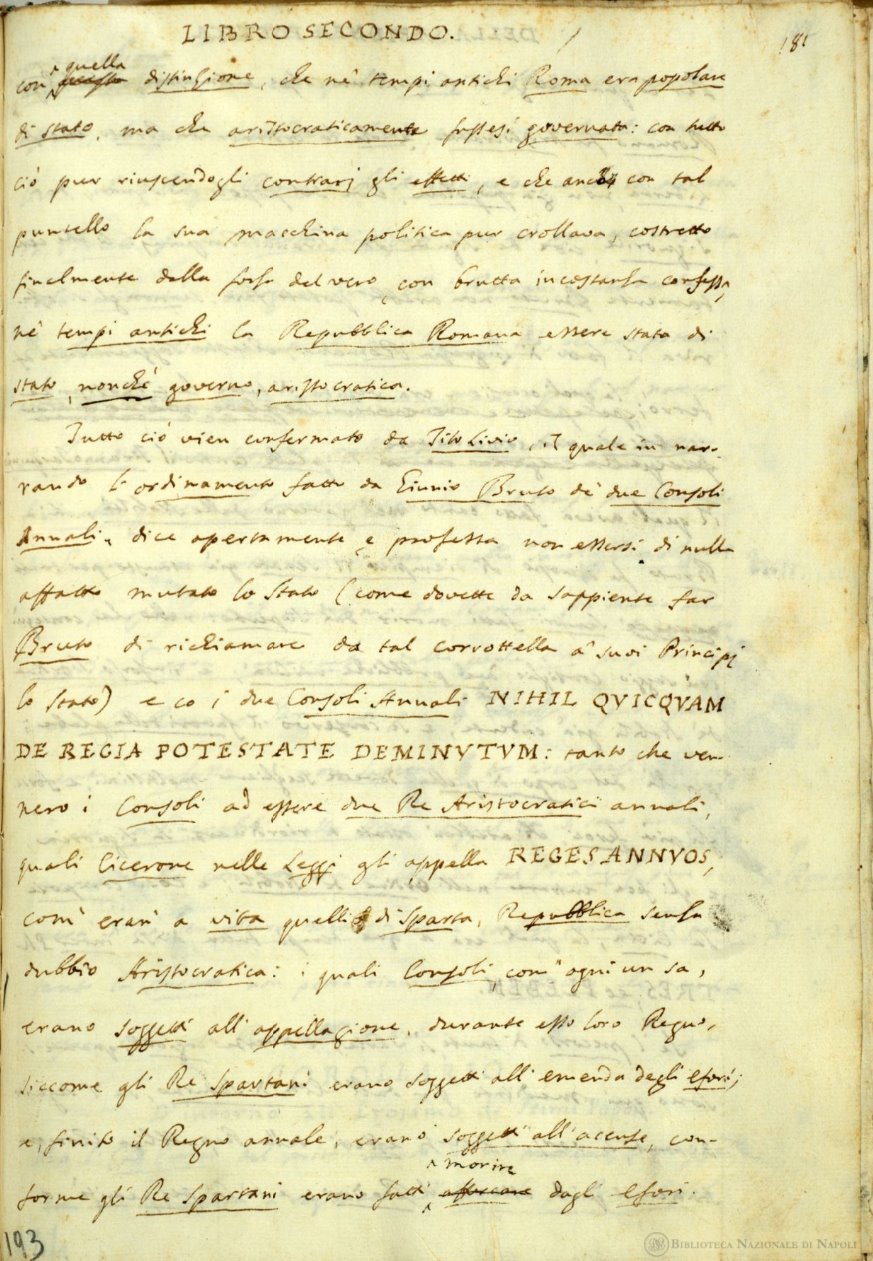 LIBRO SECONDO.
181
quella
con questa distinzione, che ne' tempi antichi Roma era popolare
di stato, ma che aristocraticamente fussesi governata: con tutto
ciò pur riuscendogli contrarj gli effetti, e che anco con tal
puntello la sua macchina politica pur crollava, costretto
finalmente dalla forza del vero, con brutta incostanza confessa,
ne' tempi antichi la Repubblica Romana essere stata di
stato, nonchè governo, aristocratica.
Tutto ciò vien confermato da Tito Livio, il quale in nar-
rando l'ordinamento fatto da Giunio Bruto de' due Consoli
Annali, dice apertamente, e professa non essersi di nulla
affatto mutato lo Stato (come dovette da sappiente far
Bruto di richiamare da tal corrottella a' suoi Principj
lo Stato) e co i due Consoli Annali NIHIL QVICQVAM
DE REGIA POTESTATE DEMINVTVM: tanto che ven-
nero i Consoli ad essere due Re Aristocratici annali,
quali Cicerone nelle Leggi gli appella REGES ANNVOS,
com' eran' a vita quelli di Sparta, Repubblica senza
dubbio Aristocratica: i quali Consoli, com' ogni un sa,
erano soggetti all'appellagione, durante esso loro Regno,
siccome gli Re Spartani erano soggetti all'emenda degli efori;
e, finito il Regno annale, erano soggetti all'accuse, con-
morire
forme gli Re Spartani erano fatti affogare dagli efori.
193
BIBLIOTECA NAZIONALE DI NAPOLI